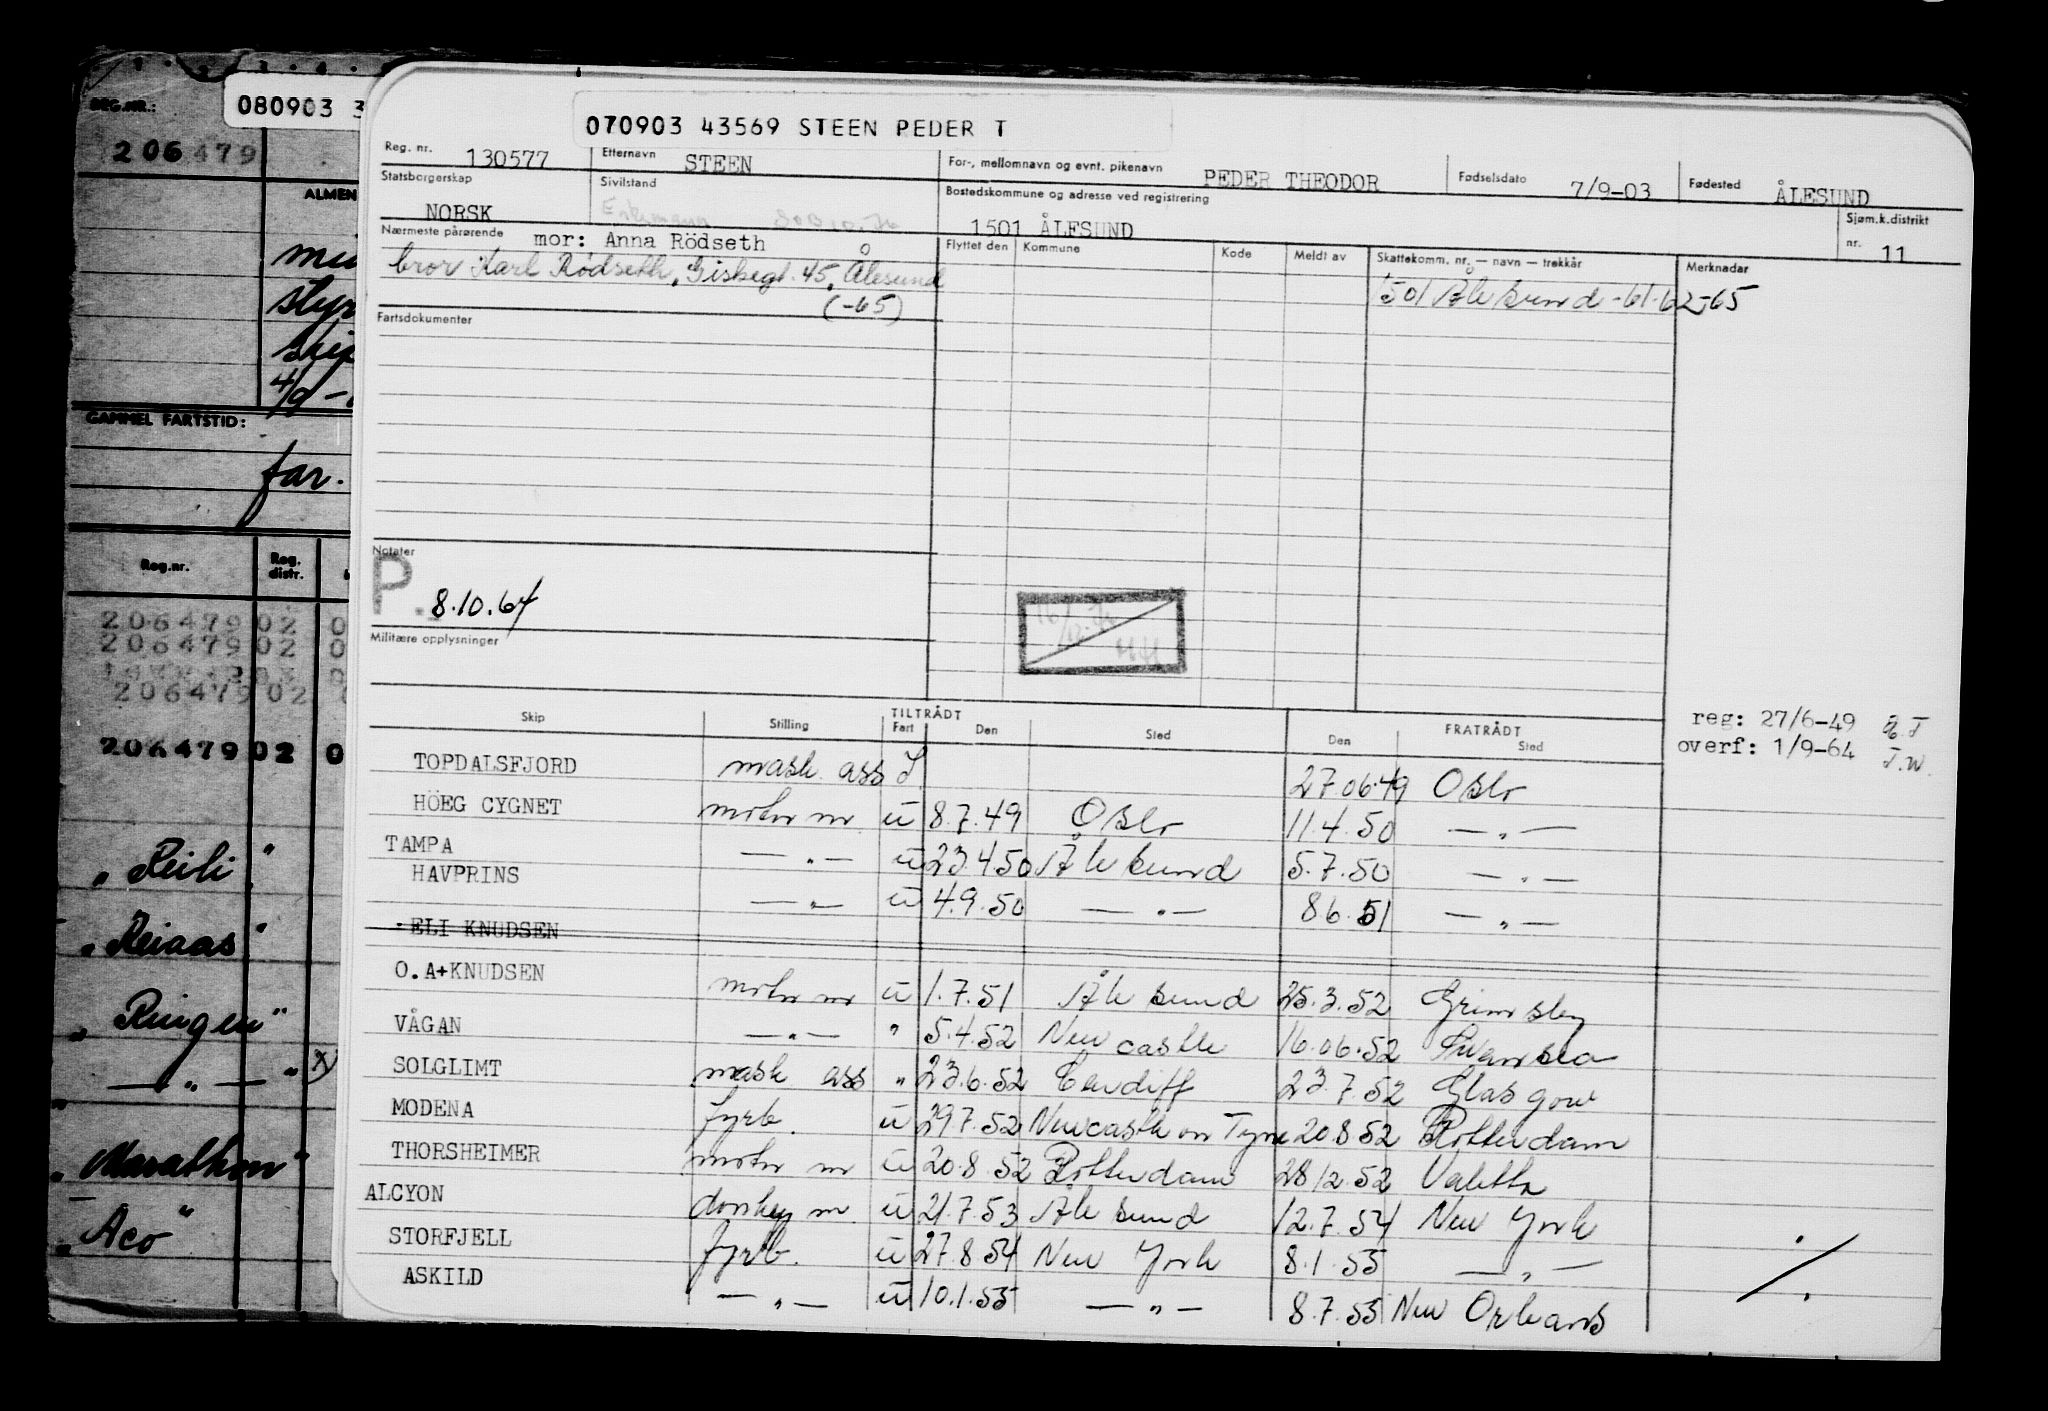 REG.NR.:
080903 3
206479
ALMEN
GAMMEL FARTSTID:
far.
Reg.nr.
Reg. distr.
206479 02 0
206479 02 0
206479 02
206479 02 0
"Reiaas"
"Ringen"
— " — "
"Marathon"
"Aco"
070903 43569 STEEN PEDER T
Reg. nr. 130577 Etternavn STEEN For-, mellomnavn og evnt. pikenavn PEDER THEODOR Fødselsdato 7/9-03 Fødested ÅLESUND
Statsborgerskap NORSK Sivilstand Enkemann Bostedskommune og adresse ved registrering 1501 ÅLESUND Sjøm.k.distrikt nr. 11
Nærmeste pårørende mor: Anna Rödseth
bror Karl Rödseth, Gisbegt. 45, Ålesund
(-65)
Flyttet den Kommune Kode Meldt av Skattekomm. nr. — navn — trekkår Merknader
1501 Ålesund -61-62-65
Fartsdokumenter
Notater
P. 8.10.64
Militære opplysninger
reg: 27/6-49
overf: 1/9-64 T.W.
Skip Stilling TILTRÅDT Fart Den Sted FRATRÅDT Den Sted
TOPDALSFJORD mask ass 27.06.49 Oslo
HÖEG CYGNET motor m u 8.7.49 Oslo 11.4.50 — " —
TAMPA — " — u 23.4.50 Ålesund 5.7.50 — " —
HAVPRINS — " — u 4.9.50 — " — 8.6.51 — " —
ELI KNUDSEN
O.A+KNUDSEN motor m u 1.7.51 Ålesund 25.3.52 Grimsby
VÅGAN — " — " 5.4.52 New castle 16.06.52 Swansea
SOLGLIMT mask ass " 23.6.52 Cardiff 23.7.52 Glasgow
MODENA fyrb. u 29.7.52 Newcastle on Tyne 20.8.52 Rotterdam
THORSHEIMER motor m u 20.8.52 Rotterdam 28.12.52 Valetta
ALCYON donkey m u 21.7.53 Ålesund 12.7.54 New York
STORFJELL fyrb. u 27.8.54 New York 8.1.55 — " —
ASKILD — " — u 10.1.55 — " — 8.7.55 New Orleans